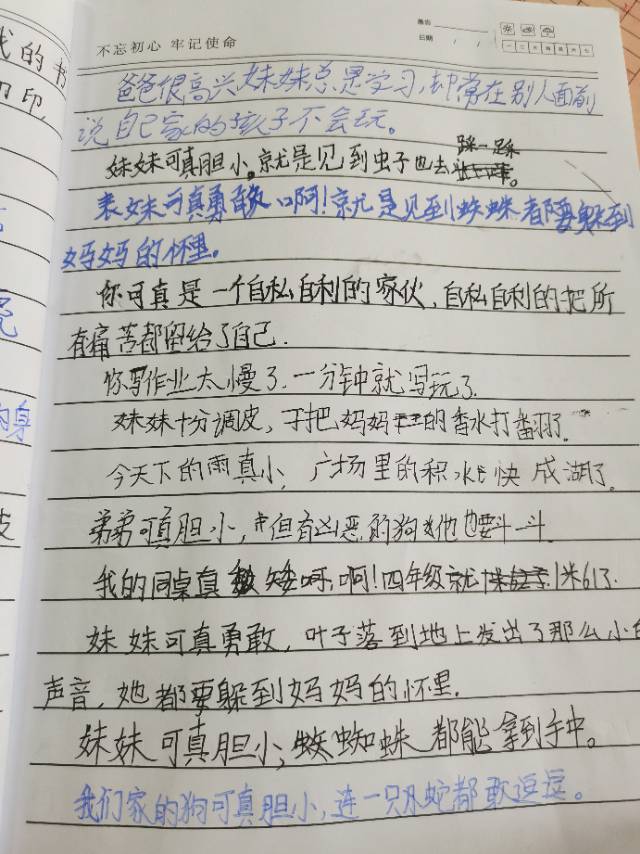 不忘初心 牢记使命
日期 / /
爸爸很高兴妹妹总是学习,却常在别人面前
说自己家的孩子不会玩。
妹妹可真胆小。就是见到虫子也去踩一踩。
表妹可真勇敢啊!就是见到蜘蛛都要躲到
妈妈的怀里。
你可真是一个自私自利的家伙,自私自利的把所
有痛苦都留给了自己.
你写作业太慢了.一分钟就写玩了.
妹妹十分调皮,把妈妈的香水打翻了.
今天下的雨真小,广场里的积水快成湖了.
弟弟可真胆小,但有凶恶的狗他也要斗一斗.
我的同桌真矮啊!四年级就1米61了.
妹妹可真勇敢,叶子落到地上发出了那么小
声音,她都要躲到妈妈的怀里.
妹妹可真胆小,蜘蛛都能拿到手中。
我们家的狗可真胆小,连一只蛇都敢逗逗。